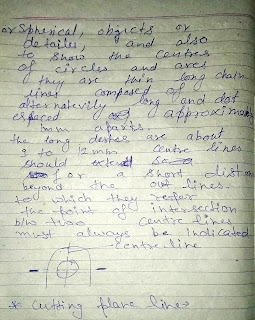 or Spherical, objects or
detailes, and also
to show the centres
of circles and arcs
they are thin long chain
lines composed of
alternatevily long and dot
espaced of approximat
6mm aparts.
the long dashes are about
3 to 12mm centre lines
should extend
for a short distan
beyond the out lines.
to which they refer
the point of intersection
b/w two centre lines
must always be indicated
centre line
* Cutting plane lines